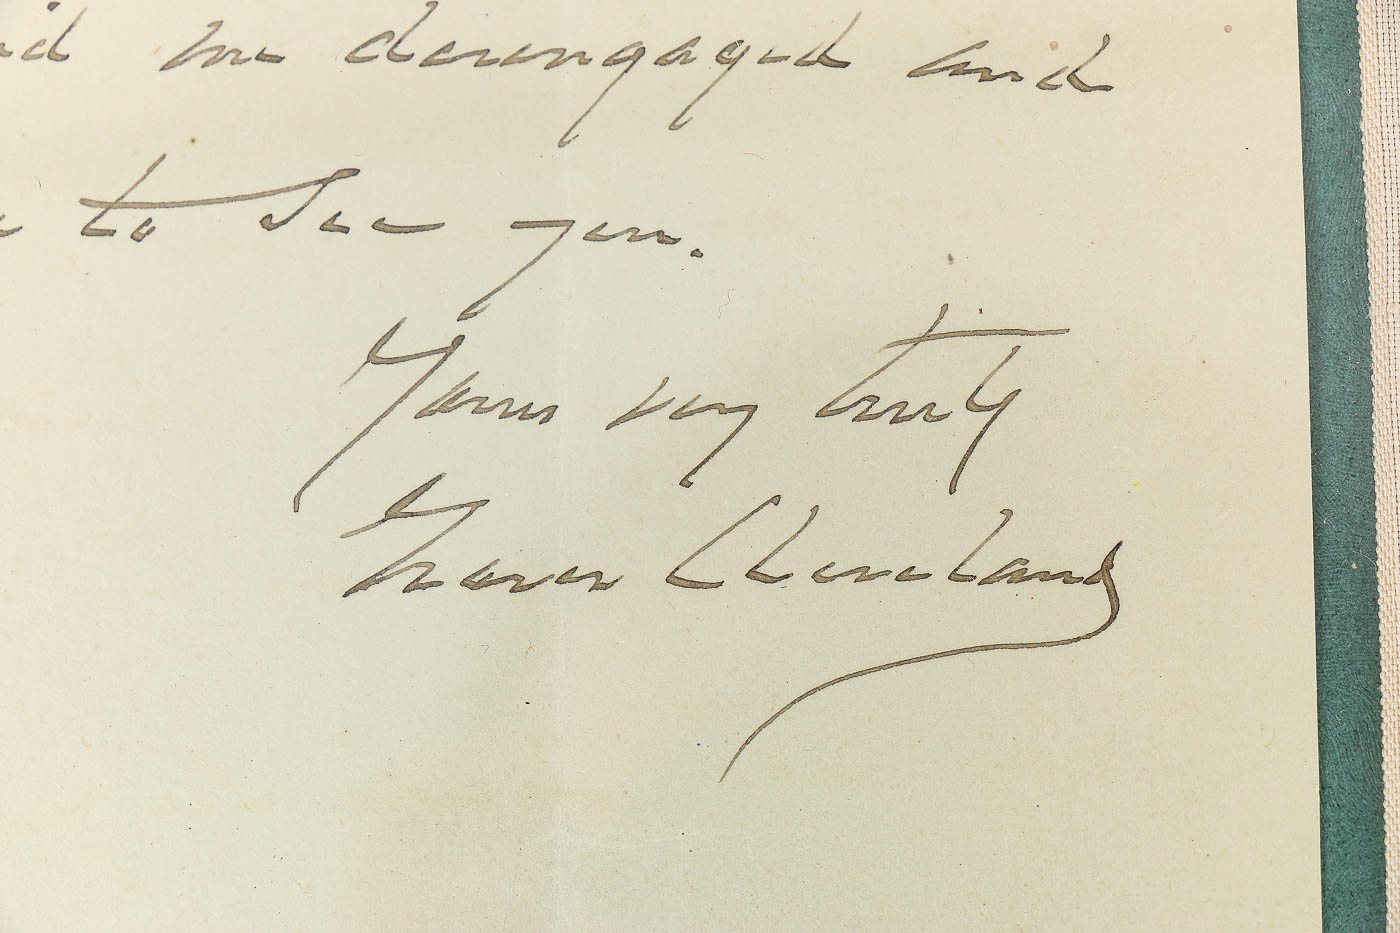 me disengaged and
to see you.
Yours very truly
Grover Cleveland